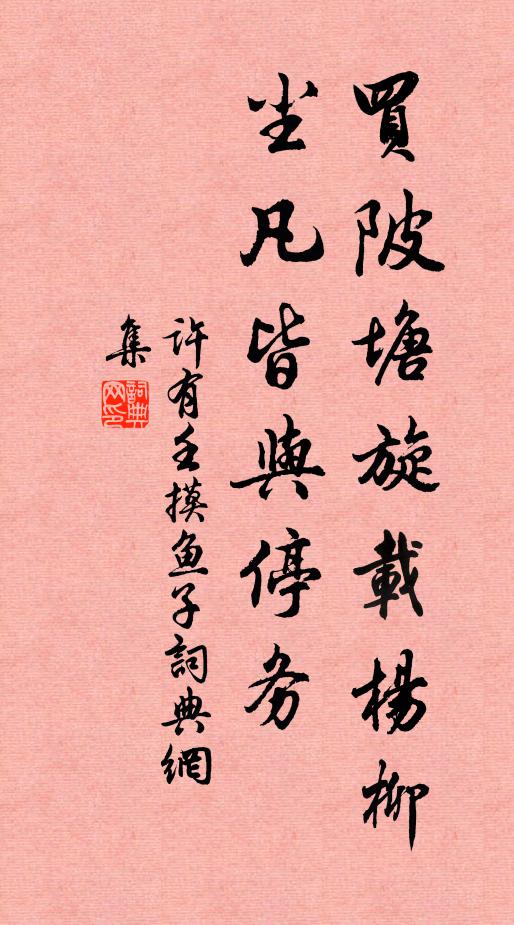 買陂塘旋載楊柳
尘凡皆與停务
許有壬摸鱼子詞典網
集
詞典
网印